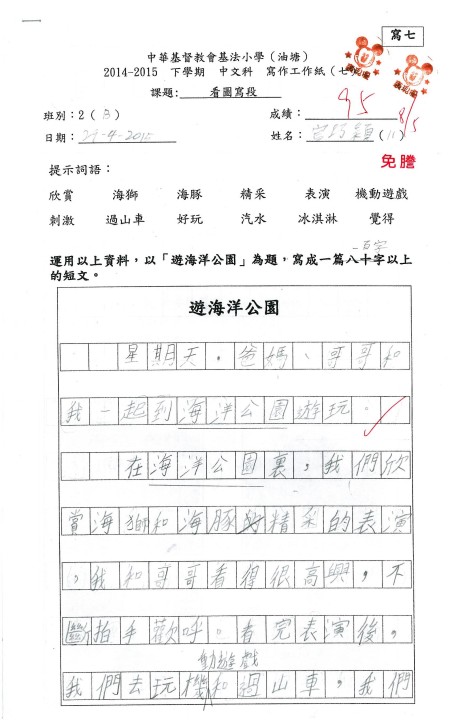 寫七
中華基督教會基法小學（油塘）
2014-2015 下學期 中文科 寫作工作紙（七）
課題: 看圖寫段
班別：2（B） 成績： 95
日期： 29-4-2015 姓名： （11） 8/5
免謄
提示詞語：
欣賞 海獅 海豚 精采 表演 機動遊戲
刺激 過山車 好玩 汽水 冰淇淋 覺得
一百字
運用以上資料，以「遊海洋公園」為題，寫成一篇八十字以上
的短文。
遊海洋公園
星期天，爸媽、哥哥和
我一起到海洋公園遊玩。
在海洋公園裏，我們欣
賞海獅和海豚精彩的表演
，我和哥哥看得很高興，不
斷拍手歡呼。看完表演後，
動遊戲
我們去玩機和過山車，我們